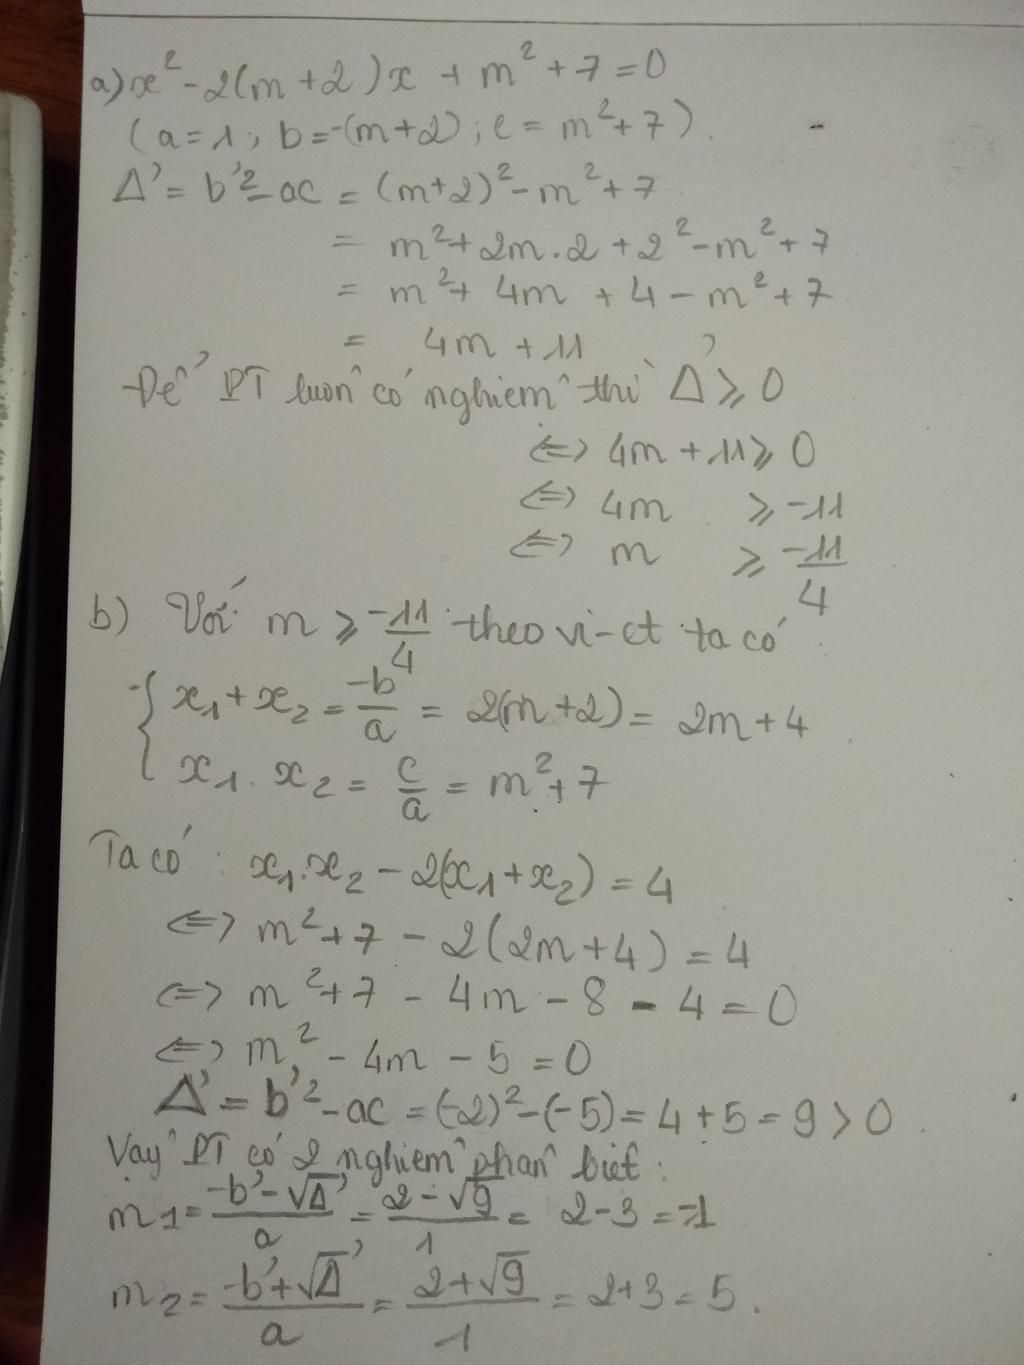 a) x² - 2(m+2)x + m² + 7 = 0
(a = 1; b = -(m+2); c = m² + 7).
Δ' = b'² - ac = (m+2)² - m² + 7
= m² + 2m.2 + 2² - m² + 7
= m² + 4m + 4 - m² + 7
= 4m + 11
Để PT luôn có nghiệm thì Δ' ⩾ 0
⇔ 4m + 11 ⩾ 0
⇔ 4m ⩾ -11
⇔ m ⩾ -11/4
b) Với m ⩾ -11/4 theo vi-et ta có :
{ x₁ + x₂ = -b/a = 2(m+2) = 2m + 4
x₁ . x₂ = c/a = m² + 7
Ta có : x₁.x₂ - 2(x₁ + x₂) = 4
⇔ m² + 7 - 2(2m + 4) = 4
⇔ m² + 7 - 4m - 8 - 4 = 0
⇔ m² - 4m - 5 = 0
Δ' = b'² - ac = (-2)² - (-5) = 4 + 5 = 9 > 0.
Vậy PT có 2 nghiệm phân biệt :
m₁ = -b' - √Δ' / a = 2 - √9 / 1 = 2 - 3 = -1
m₂ = -b' + √Δ' / a = 2 + √9 / 1 = 2 + 3 = 5.